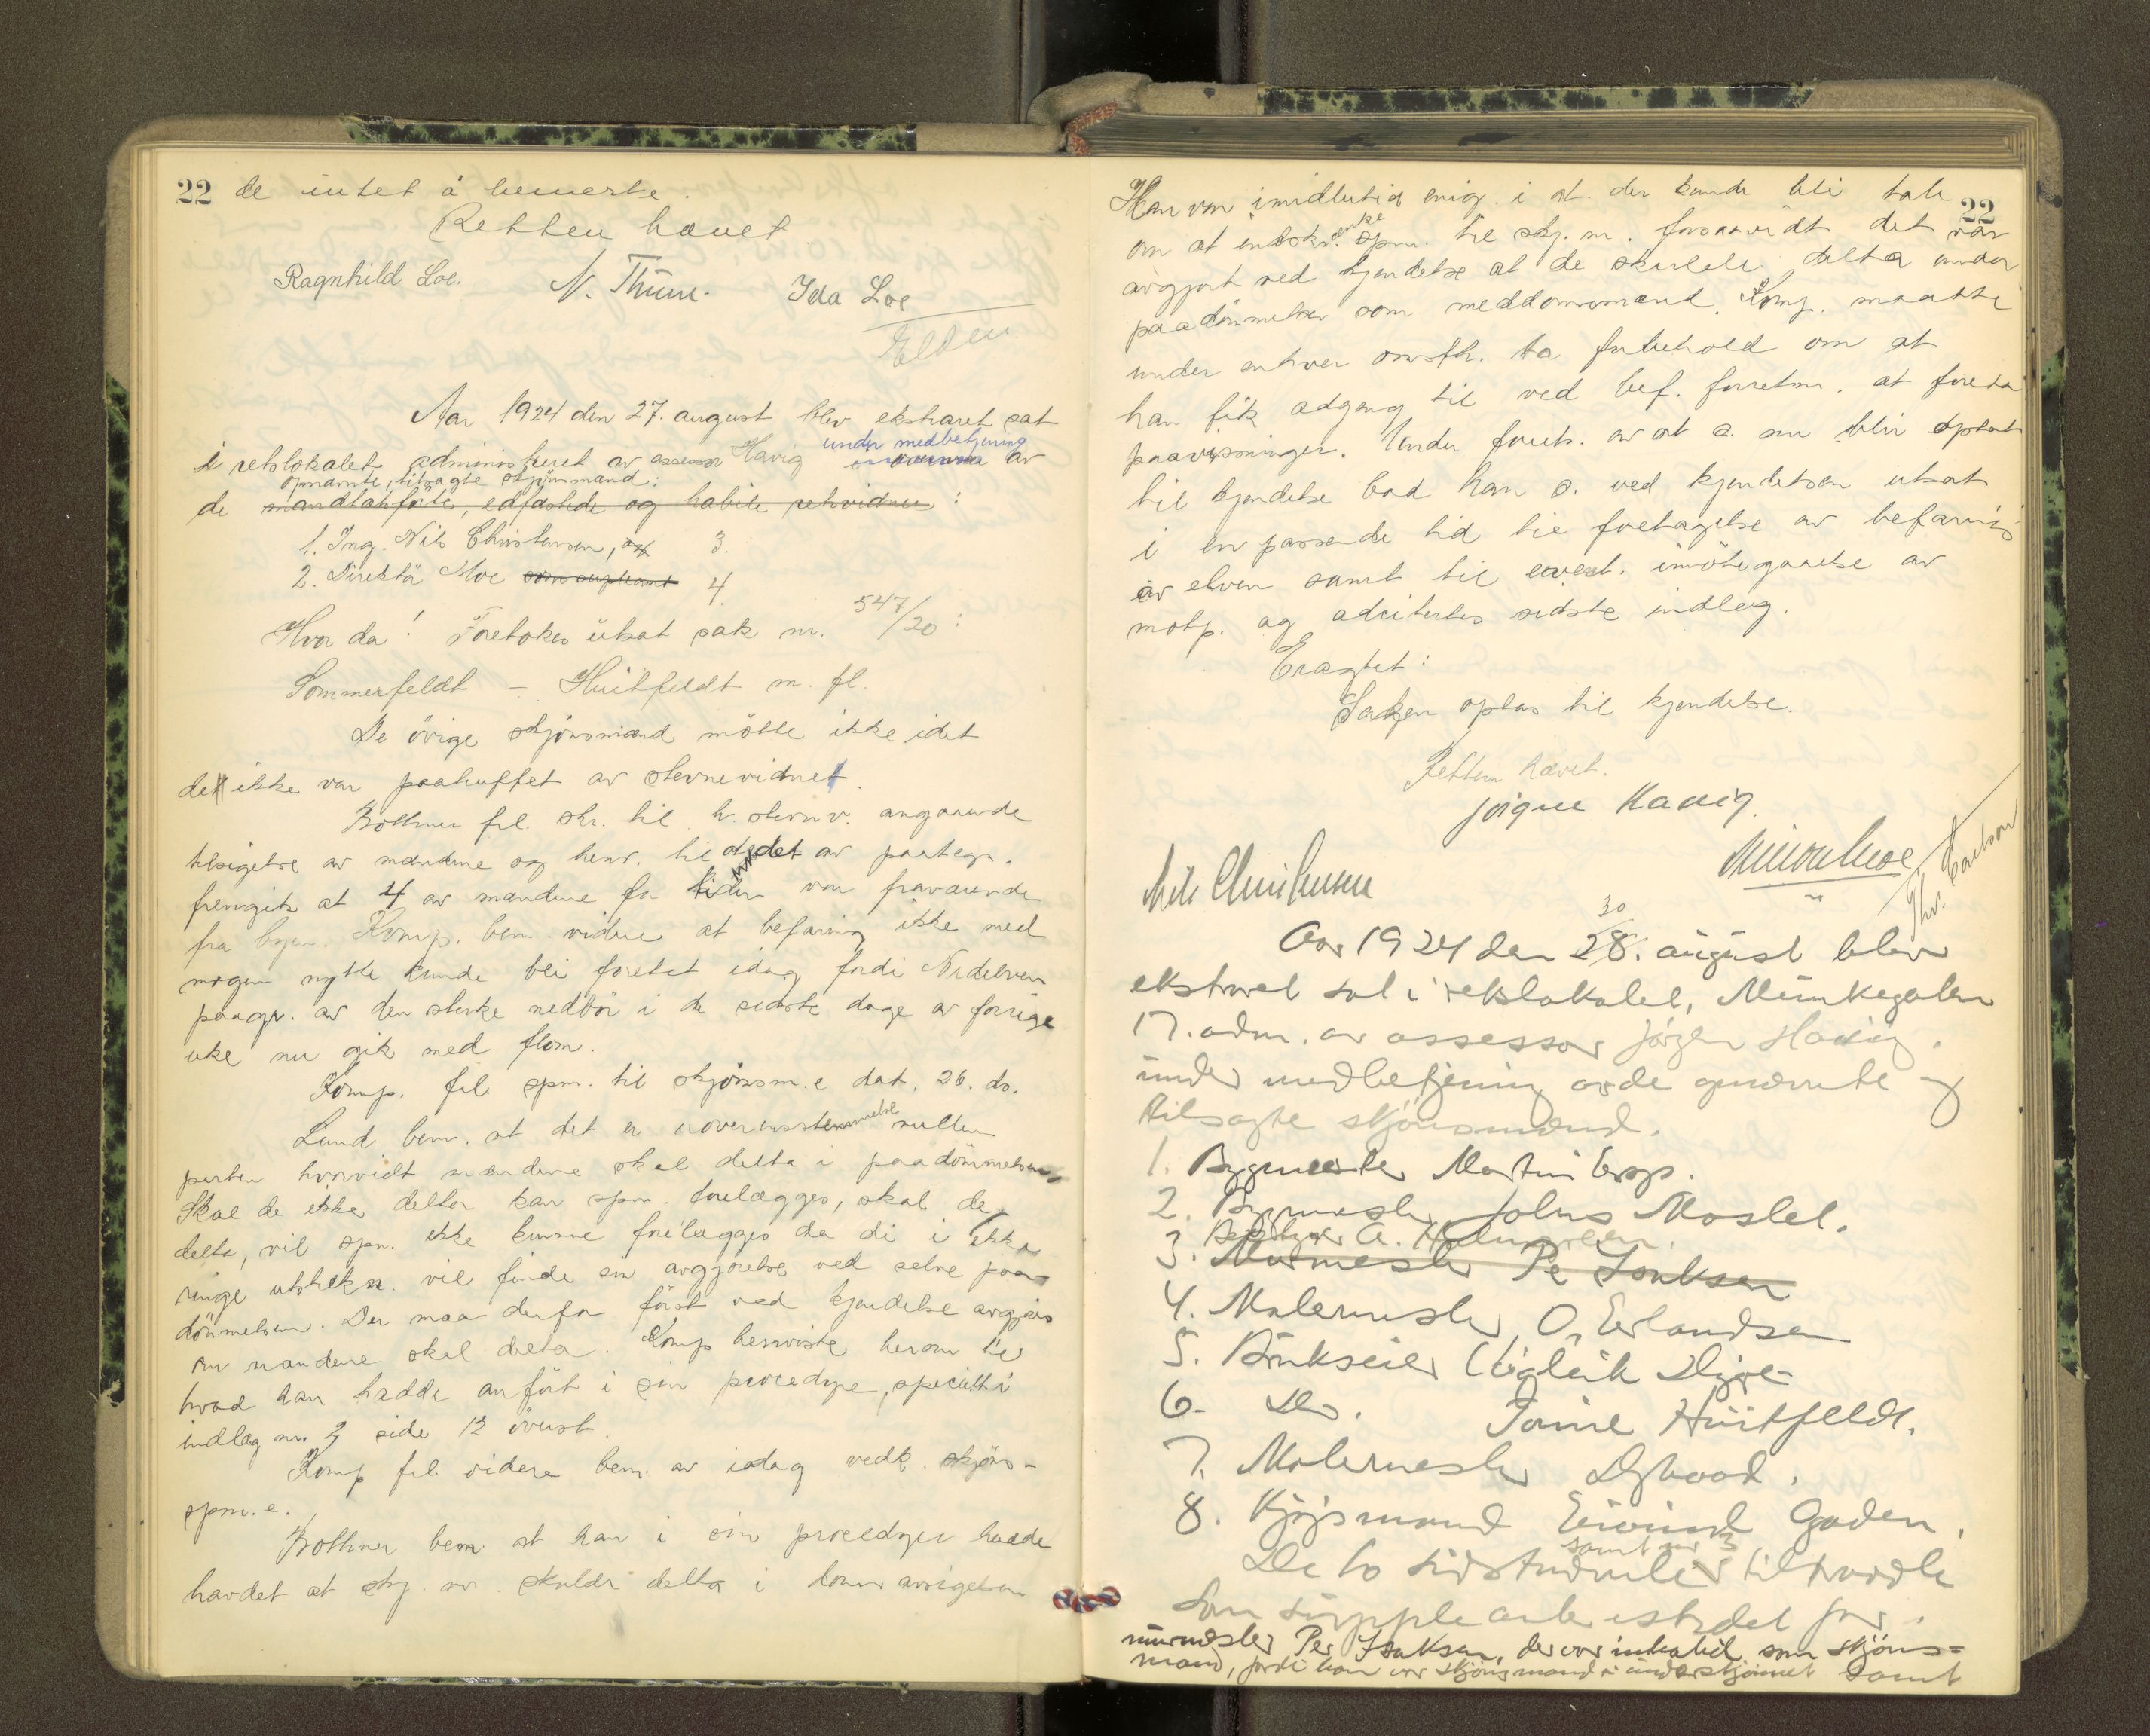 22 de intet å bemerke.
Retten hævet
Ragnhild Loe. N. Thune. Ida Loe
Elden
Aar 1924 den 27. august blev ekstraret sat
i retslokalet administreret av assessor Havig under medbetjening av
opnævnte, tilsagte skjönsmænd:
de mandtalsförte, edfæstede og habile retsvidner :
1. Ing. Nils Christensen, 3.
2. Direktör Moe som suppleant 4.
Hvor da! Foretokes utsat sak nr. 547/20 :
Sommerfeldt - Huitfeldt m. fl.
De övrige skjönsmænd mötte ikke idet
det ikke var paaheftet av stevnevidnet.
Bothner frl. skr. til h. stevnv. angaaende
tilsigelse av mændene og henv. til at det av paategn.
fremgik at 4 av mændene for tiden var fraværende
fra byen. Komp. bem. videre at befaring ikke med
nogen nytte kunde bli foretat idag fordi Nidelven
paagr. av den sterke nedbör i de sidste dage av forrige
uke nu gik med flom.
Komp. frl. spm. til skjönsm.e dat. 26. ds.
Lund bem. at det er uoverensstemmelse mellem
parten hvorvidt mændene skal delta i paadömmelsen
Skal de ikke delta kan spm. forelægges, skal de
delta, vil spm. ikke kunne forelægges da di i ikke
ringe utstrekn. vil finde sin avgjörelse ved selve paa-
dömmelsen. Der maa derfor först ved kjendelse avgjöres
om mændene skal delta. Komp henviste herom til
hvad han hadde anfört i sin procedyre, specielt i
indlæg nr. 3 side 12 överst.
Komp frl. videre bem. av idag vedk. skjöns-
spm.e.
Bothner bem. at han i sin procedyre hadde
hævdet at skj. m. skulde delta i domsavsigelsen
22
Han var imidlertid enig i at der kunde bli tale
om at indskrænke spm. til skj. m. forsaavidt det var
avgjort ved kjendelse at de skulde delta under
paadömmelsen som meddomsmænd. Komp. maatte
under enhver omsth. ta forbehold om at
han fik adgang til ved bef. forretn. at foreta
paavisninger. Under foruts. av at s. nu blir optat
til kjendelse bad han s. ved kjendelsen utsat
i en passende tid til foretagelse av befaring
av elven samt til event. imötegaaelse av
motp. og adcitertes sidste indlæg.
Eragtet:
Saken optas til kjendelse.
Retten hævet.
Jörgen Havig.
Nils Christensen Simon Moe Thv. Carlson
30
Aar 1924 den 28. august blev
ekstraret sat i retslokalet, Munkegaten
17. adm. av assessor Jörgen Havig.
under medbetjening av de opnævnte og
tilsagte skjönsmænd.
1. Bygmester Martin Erp.
2. Bygmester Johns Moslet.
A. Holmgreen.
3. Murmester Per Isaksen
4. Malermester O. Erlandsen
5. Brukseier Digre
6. Do. Tönne Huitfeldt.
7. Malermester Dybvad.
8. Kjöpmand Eivind Gaden.
samt nr 3
De to sidstnævnte tiltraadte
som suppleanter istedet for
murmester Per Isaksen, der var inhabil som skjöns=
mand, fordi han var skjönsmand i underskjönnet samt